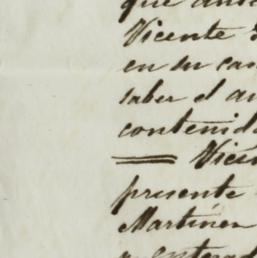 que ante
Vicente
en su
saber el
contenid
Vicen
presente
Martinez
y enterad